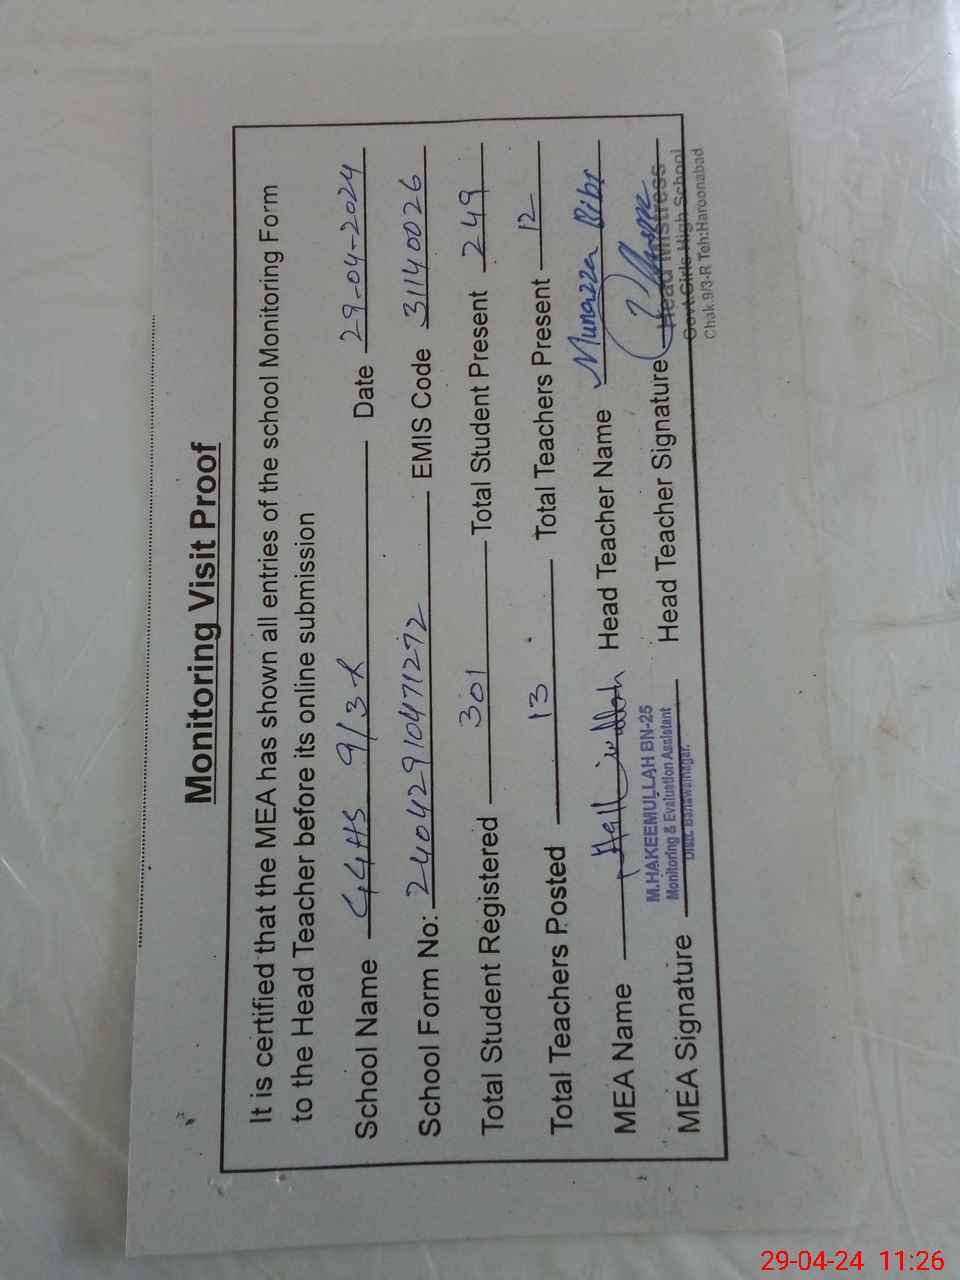 Monitoring Visit Proof
It is certified that the MEA has shown all entries of the school Monitoring Form
to the Head Teacher before its online submission
School Name GGHS 9/3-R Date 29-04-2024
School Form No: 24042910471272 EMIS Code 31140026
Total Student Registered 301 Total Student Present 249
Total Teachers Posted 13 Total Teachers Present 12
MEA Name Head Teacher Name Munazza Bibi
M.HAKEEMULLAH BN-25
Monitoring & Evaluation Assistant
Distt. Bahawalnagar.
MEA Signature Head Teacher Signature
Head Mistress
Govt.Girls High School
Chak.9/3-R Teh:Haroonabad
29-04-24 11:26